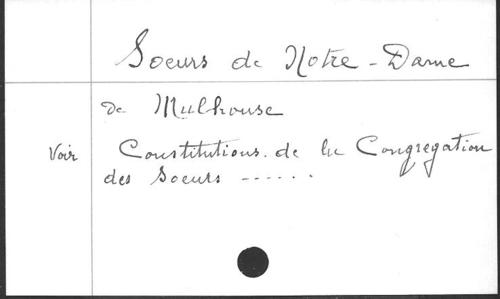 Soeurs de Notre-Dame
de Mulhouse
Voir Constitutions de la Congregation
des Soeurs ------